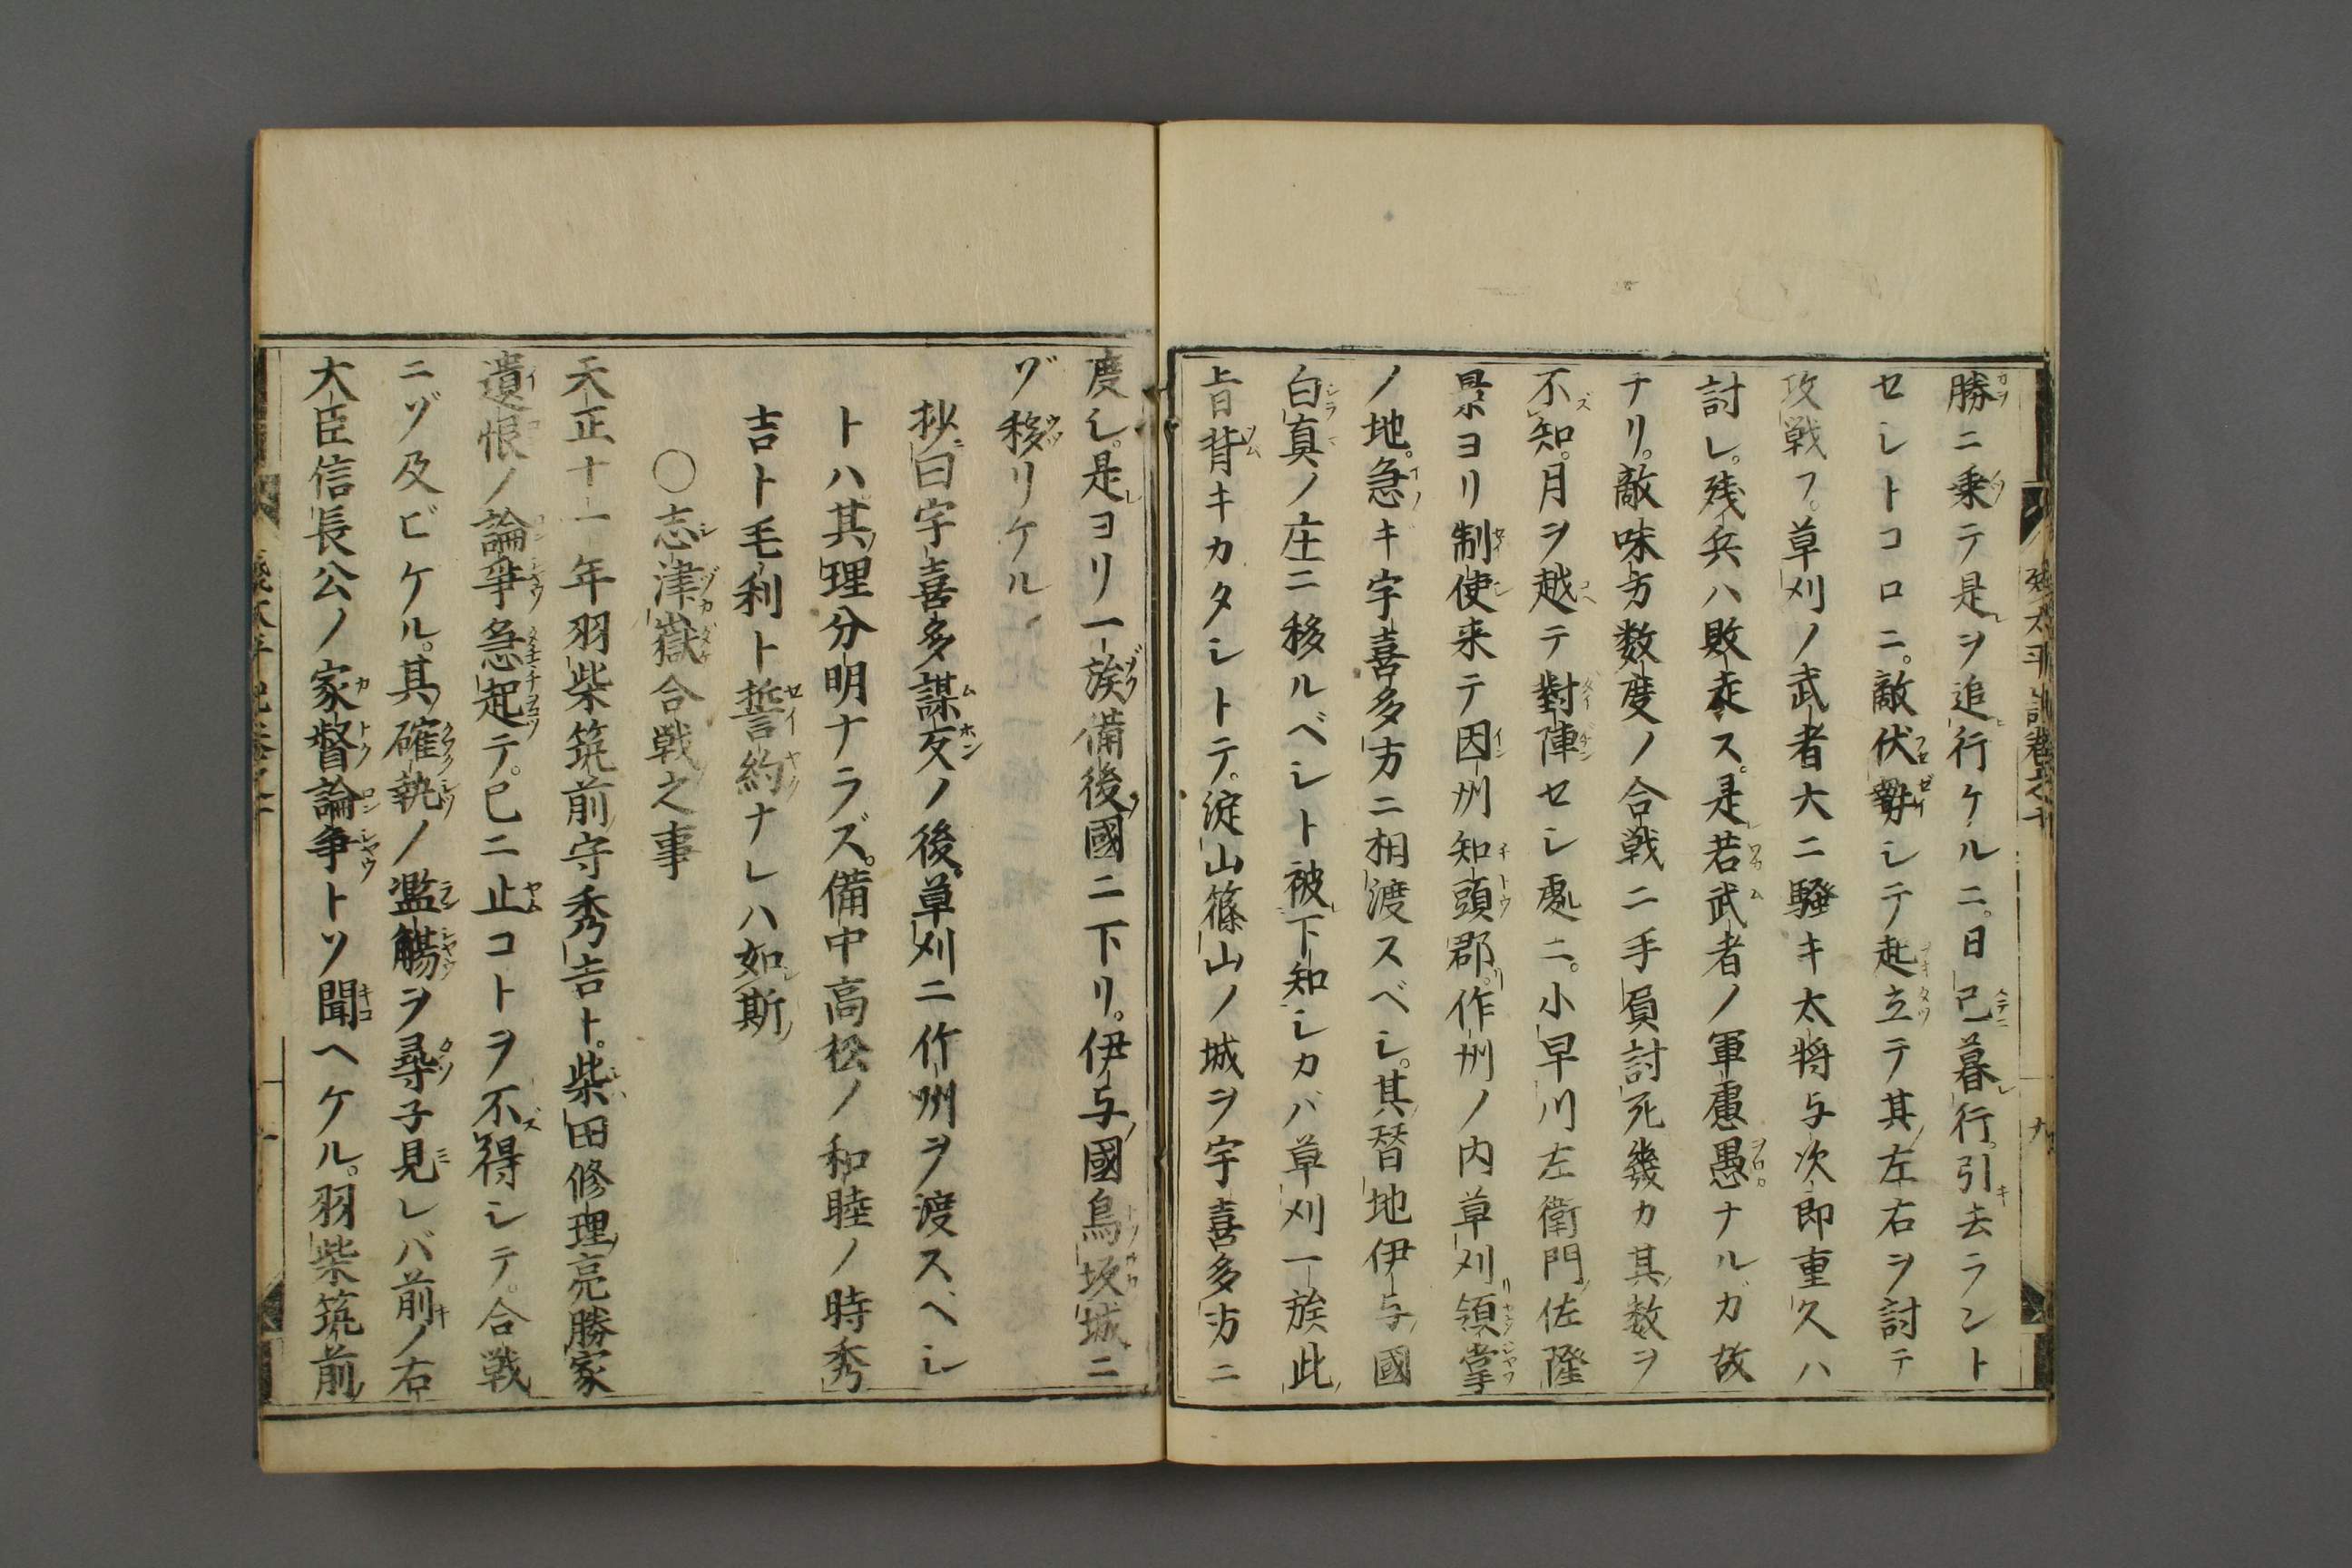 勝ニ乗テ是ヲ追行ケルニ。日已暮行。引去ラント
セシトコロニ。敵伏勢シテ起立テ其左右ヲ討テ
攻戦フ。草刈ノ武者大ニ騒キ太将与次郎重久ハ
討レ。残兵ハ敗走ス。是若武者ノ軍慮愚ナルガ故
ナリ。敵味方数度ノ合戦ニ手負討死幾カ其数ヲ
不知。月ヲ越テ對陣セシ處ニ。小早川左衛門佐隆
景ヨリ制使来テ因州知頭郡。作州ノ内草刈領掌
ノ地。急キ宇喜多方ニ相渡スベシ。其替地伊与國
白真ノ庄ニ移ルベシト被下知シカバ草刈一族此
旨背キカタシトテ。淀山篠山ノ城ヲ宇喜多方ニ
度シ。是ヨリ一族備後國ニ下リ。伊与國鳥坂城ニ
ヅ移リケル
抄曰宇喜多謀反ノ後。草刈ニ作州ヲ渡スベシ
トハ其理分明ナラズ。備中高松ノ和睦ノ時秀
吉ト毛利ト誓約ナレハ如斯
○志津嶽合戦之事
天正十一年羽柴筑前守秀吉ト。柴田修理亮勝家
遺恨ノ論争急起テ。已ニ止コトヲ不得シテ。合戦
ニゾ及ビケル。其確執ノ濫觴ヲ尋子見レバ前ノ右
大臣信長公ノ家督論争トソ聞ヘケル。羽柴筑前